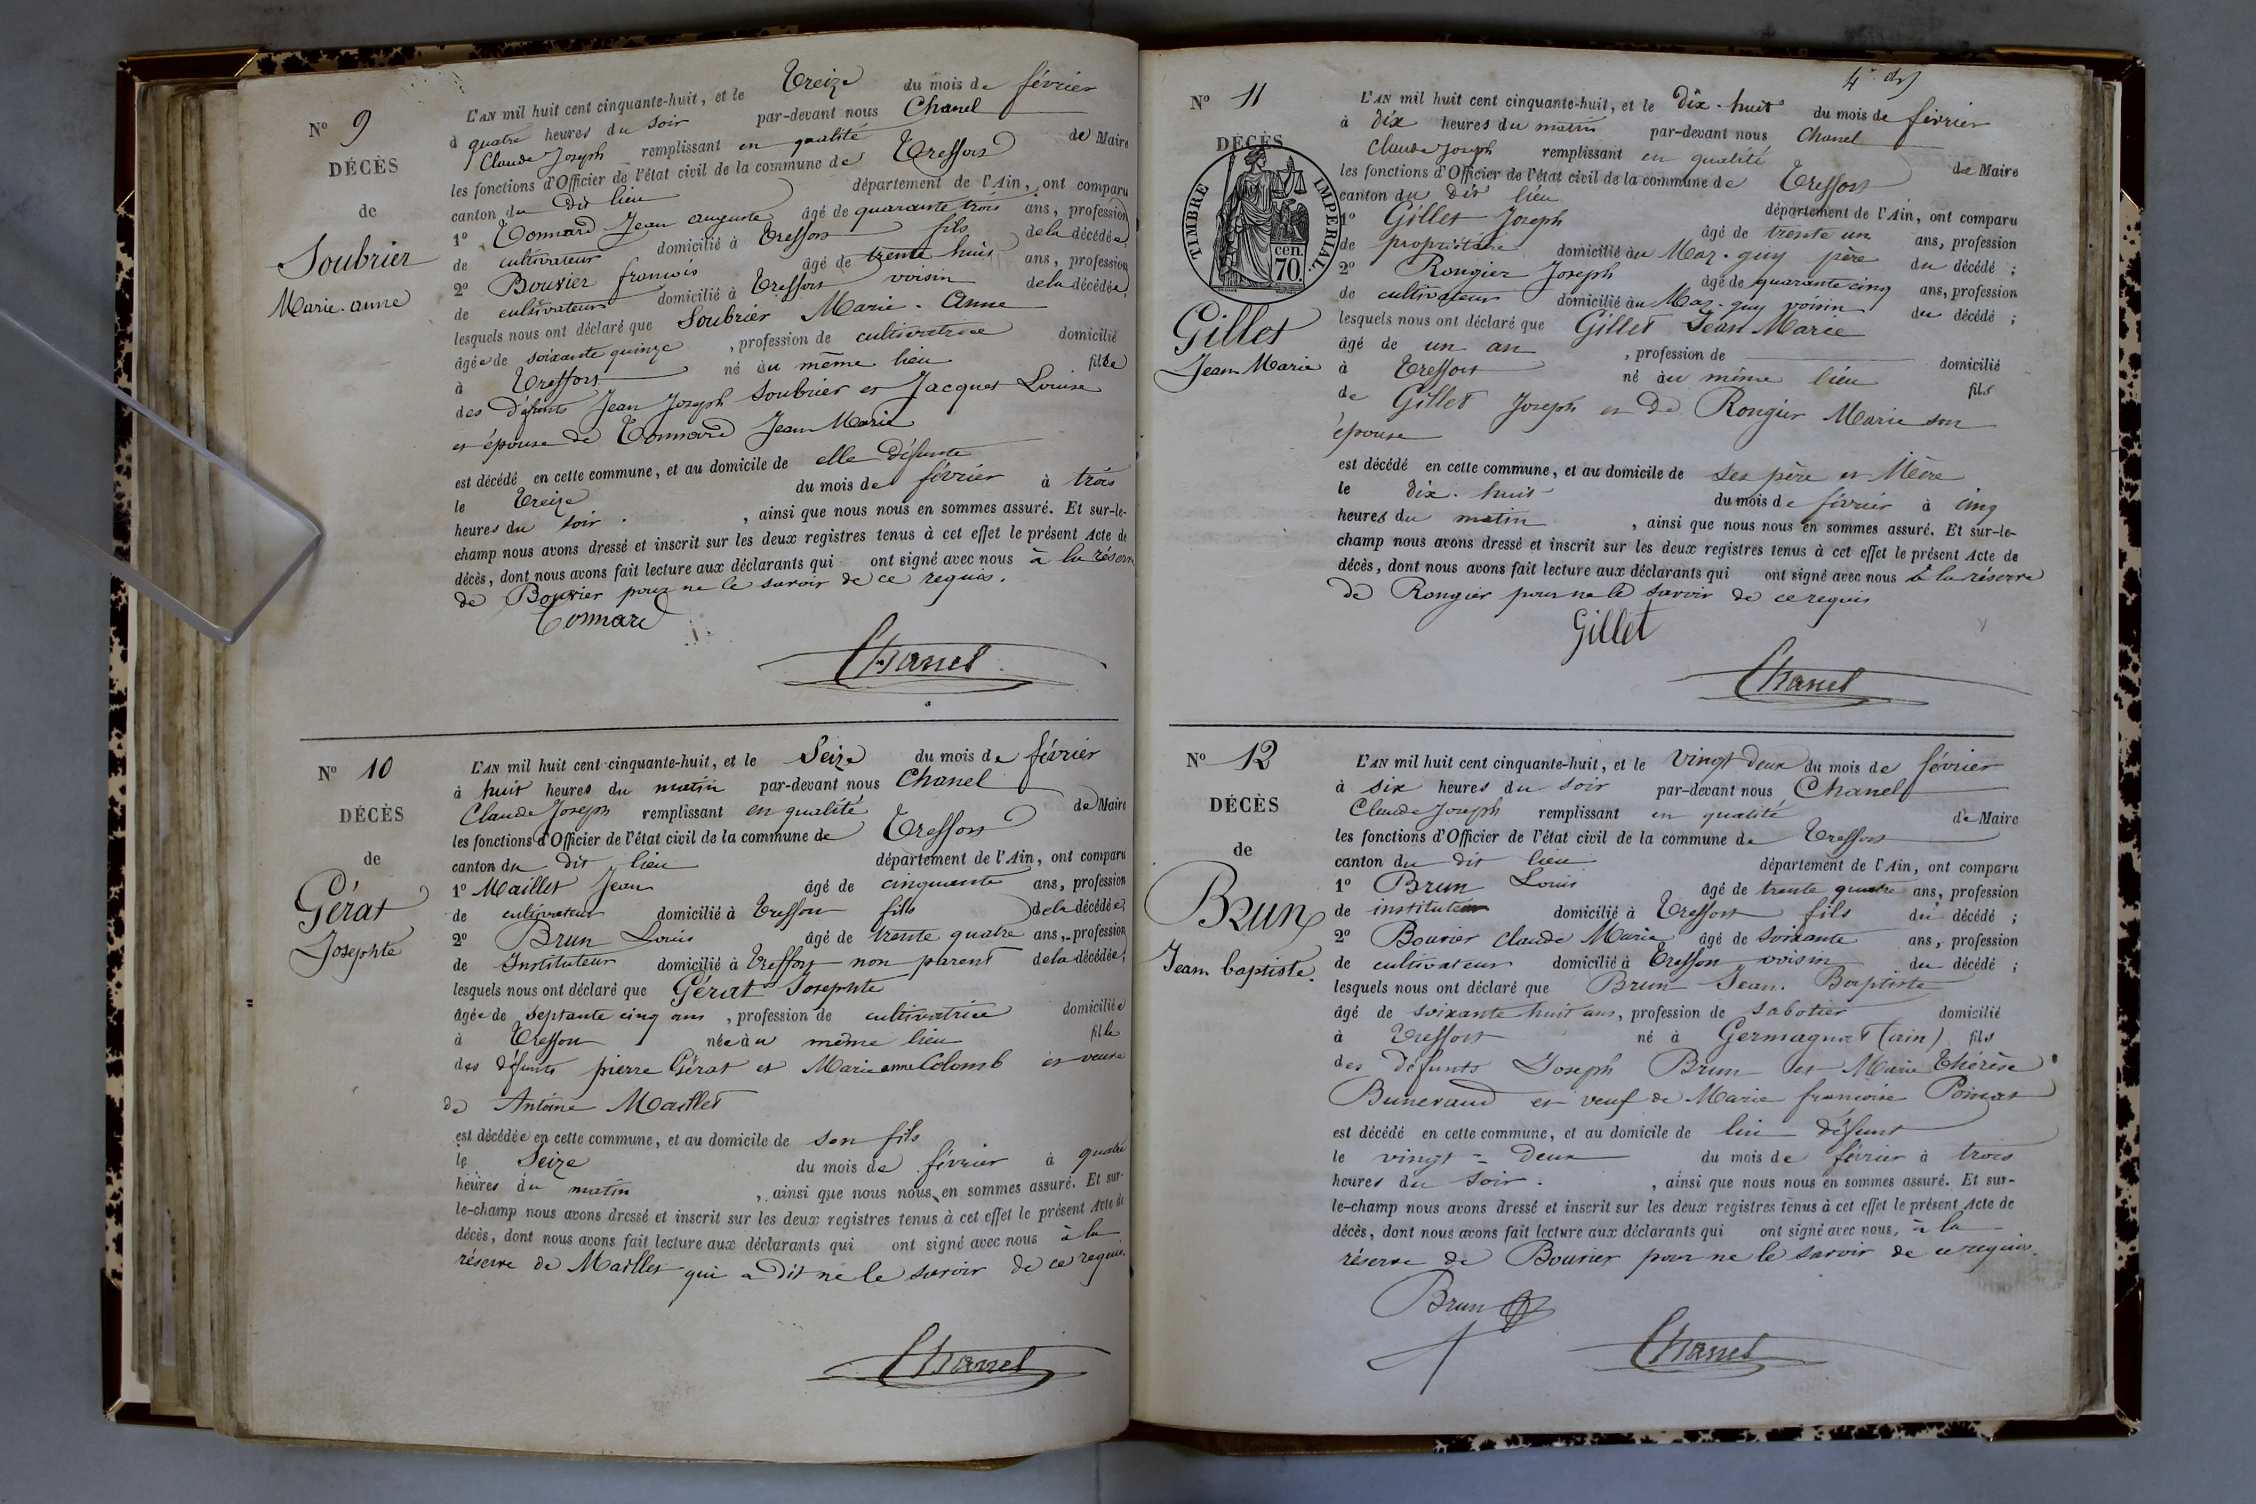 N° 9
DÉCÈS
de
Soubrier
Marie-anne
L'AN mil huit cent cinquante-huit, et le Treize du mois de février
à quatre heures du soir par-devant nous Chanel
Claude Joseph remplissant en qualité de Maire
les fonctions d'Officier de l'état civil de la commune de Treffort
canton du dit lieu département de l'Ain, ont comparu
1° Connard Jean auguste âgé de quarante trois ans, profession
de cultivateur domicilié à Treffort fils de la décédée,
2° Bouvier francois âgé de trente huit ans, profession
de cultivateur domicilié à Treffort voisin de la décédée,
lesquels nous ont déclaré que Soubrier Marie-Anne
âgée de soixante quinze, profession de cultivatrice domicilié
à Treffort né au même lieu fille
des défunts Jean Joseph Soubrier et Jacquet Louise
et épouse de Connard Jean Marie
est décédé en cette commune, et au domicile de elle défunte
le Treize du mois de février à trois
heures du soir, ainsi que nous nous en sommes assuré. Et sur-le-
champ nous avons dressé et inscrit sur les deux registres tenus à cet effet le présent Acte de
décès, dont nous avons fait lecture aux déclarants qui ont signé avec nous à la réserve
de Bouvier pour ne le savoir de ce requis.
Connard
Chanel
N° 10
DÉCÈS
de
Gérat
Josephte
L'AN mil huit cent cinquante-huit, et le Seize du mois de février
à huit heures du matin par-devant nous Chanel
Claude Joseph remplissant en qualité de Maire
les fonctions d'Officier de l'état civil de la commune de Treffort
canton du dit lieu département de l'Ain, ont comparu
1° Maillet Jean âgé de cinquante ans, profession
de cultivateur domicilié à Treffort fils de la décédée;
2° Brun Louis âgé de trente quatre ans, profession
de Instituteur domicilié à Treffort non parent de la décédée;
lesquels nous ont déclaré que Gérat Josephte
âgée de septante cinq ans, profession de cultivatrice domiciliée
à Treffort née au même lieu fille
des défunts pierre Gérat et Marie anne Colomb et veuve
de Antoine Maillet
est décédée en cette commune, et au domicile de son fils
le Seize du mois de février à quatre
heures du matin, ainsi que nous nous en sommes assuré. Et sur-
le-champ nous avons dressé et inscrit sur les deux registres tenus à cet effet le présent Acte de
décès, dont nous avons fait lecture aux déclarants qui ont signé avec nous à la
réserve de Maillet qui a dit ne le savoir de ce requis.
Chanel
N° 11
DÉCÈS
TIMBRE IMPERIAL.
cen.
70
Gillet
Jean Marie
L'AN mil huit cent cinquante-huit, et le dix-huit du mois de février
à dix heures du matin par-devant nous Chanel
Claude Joseph remplissant en qualité de Maire
les fonctions d'Officier de l'état civil de la commune de Treffort
canton du dit lieu département de l'Ain, ont comparu
1° Gillet Joseph âgé de trente un ans, profession
de propriétaire domicilié au Mas-guy père du décédé;
2° Rongier Joseph âgé de quarante cinq ans, profession
de cultivateur domicilié au Mas-guy voisin du décédé;
lesquels nous ont déclaré que Gillet Jean Marie
âgé de un an, profession de domicilié
à Treffort né au même lieu fils
de Gillet Joseph et de Rongier Marie son
épouse
est décédé en cette commune, et au domicile de ses père et Mère
le dix-huit du mois de février à cinq
heures du matin, ainsi que nous nous en sommes assuré. Et sur-le-
champ nous avons dressé et inscrit sur les deux registres tenus à cet effet le présent Acte de
décès, dont nous avons fait lecture aux déclarants qui ont signé avec nous à la réserve
de Rongier pour ne le savoir de ce requis
Gillet
Chanel
N° 12
DÉCÈS
de
Brun
Jean baptiste.
L'AN mil huit cent cinquante-huit, et le vingt deux du mois de février
à six heures du soir par-devant nous Chanel
Claude Joseph remplissant en qualité de Maire
les fonctions d'Officier de l'état civil de la commune de Treffort
canton du dit lieu département de l'Ain, ont comparu
1° Brun Louis âgé de trente quatre ans, profession
de instituteur domicilié à Treffort fils du décédé;
2° Bouvier Claude Marie âgé de soixante ans, profession
de cultivateur domicilié à Treffort voisin du décédé;
lesquels nous ont déclaré que Brun Jean-Baptiste
âgé de soixante huit ans, profession de sabotier domicilié
à Treffort né à Germagnat (ain) fils
des défunts Joseph Brun et Marie Thérèse
Buneraud et veuf de Marie francoise
est décédé en cette commune, et au domicile de lui défunt
le vingt-deux du mois de février à trois
heures du soir., ainsi que nous nous en sommes assuré. Et sur-
le-champ nous avons dressé et inscrit sur les deux registres tenus à cet effet le présent Acte de
décès, dont nous avons fait lecture aux déclarants qui ont signé avec nous, à la
réserve de Bouvier pour ne le savoir de ce requis.
Brun
Chanel